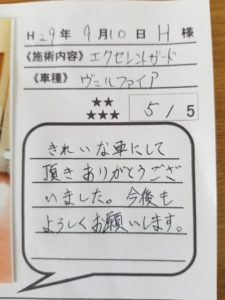 H29年9月10日 H 様
《施術内容》エクセレントガード
《車種》ヴェルファイア
★★
★★★
5/5
きれいな車にして
頂きありがとうござ
いました。今後も
よろしくお願いします。